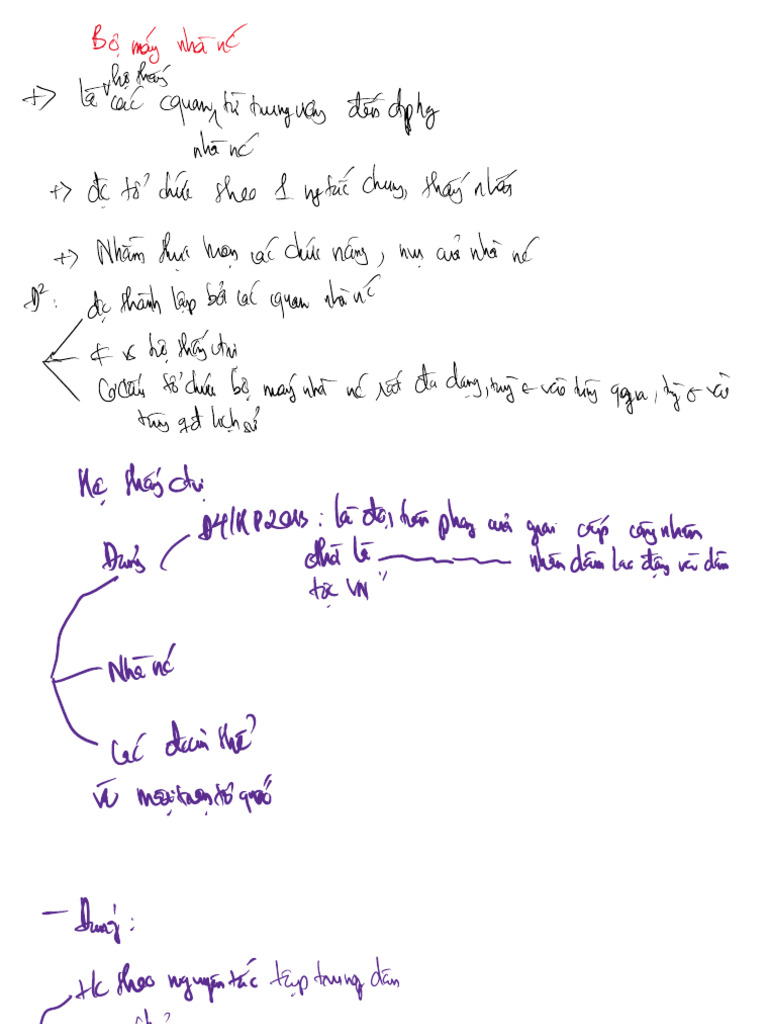 Bộ máy nhà nc
hệ thống
+> là các cquan từ trung ương đến đphg
nhà nc
+> đc tổ chức theo 1 ngtắc chung, thống nhất
+> Nhằm thực hiện các chức năng, nvụ của nhà nc
Đ²: đc thành lập bởi các quan nhà nc
≠ vs hệ thống ctrị
Cơ cấu tổ chức bộ máy nhà nc rất đa dạng, tùy vào từng qgia, tùy vào
từng gđ lịch sử
Hệ thống ctrị
Đ4/HP2013: là đội tiên phong của giai cấp công nhân
Đảng
nhân dân lao động và dân
tộc VN"
Nhà nc
Các đoàn thể
và mặt trận tổ quốc
- Đảng:
tc theo nguyên tắc tập trung dân